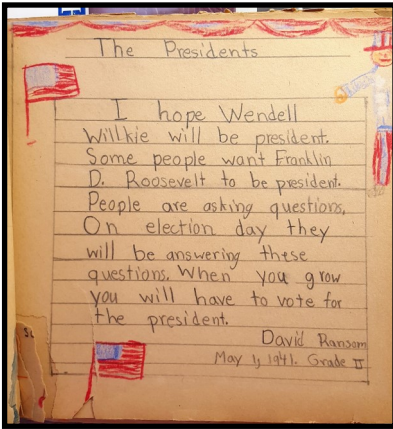 The Presidents
I hope Wendell
Willkie will be president.
Some people want Franklin
D. Roosevelt to be president.
People are asking questions.
On election day they
will be answering these
questions. When you grow
you will have to vote for
the president.
David Ransom
May 1, 1941. Grade II